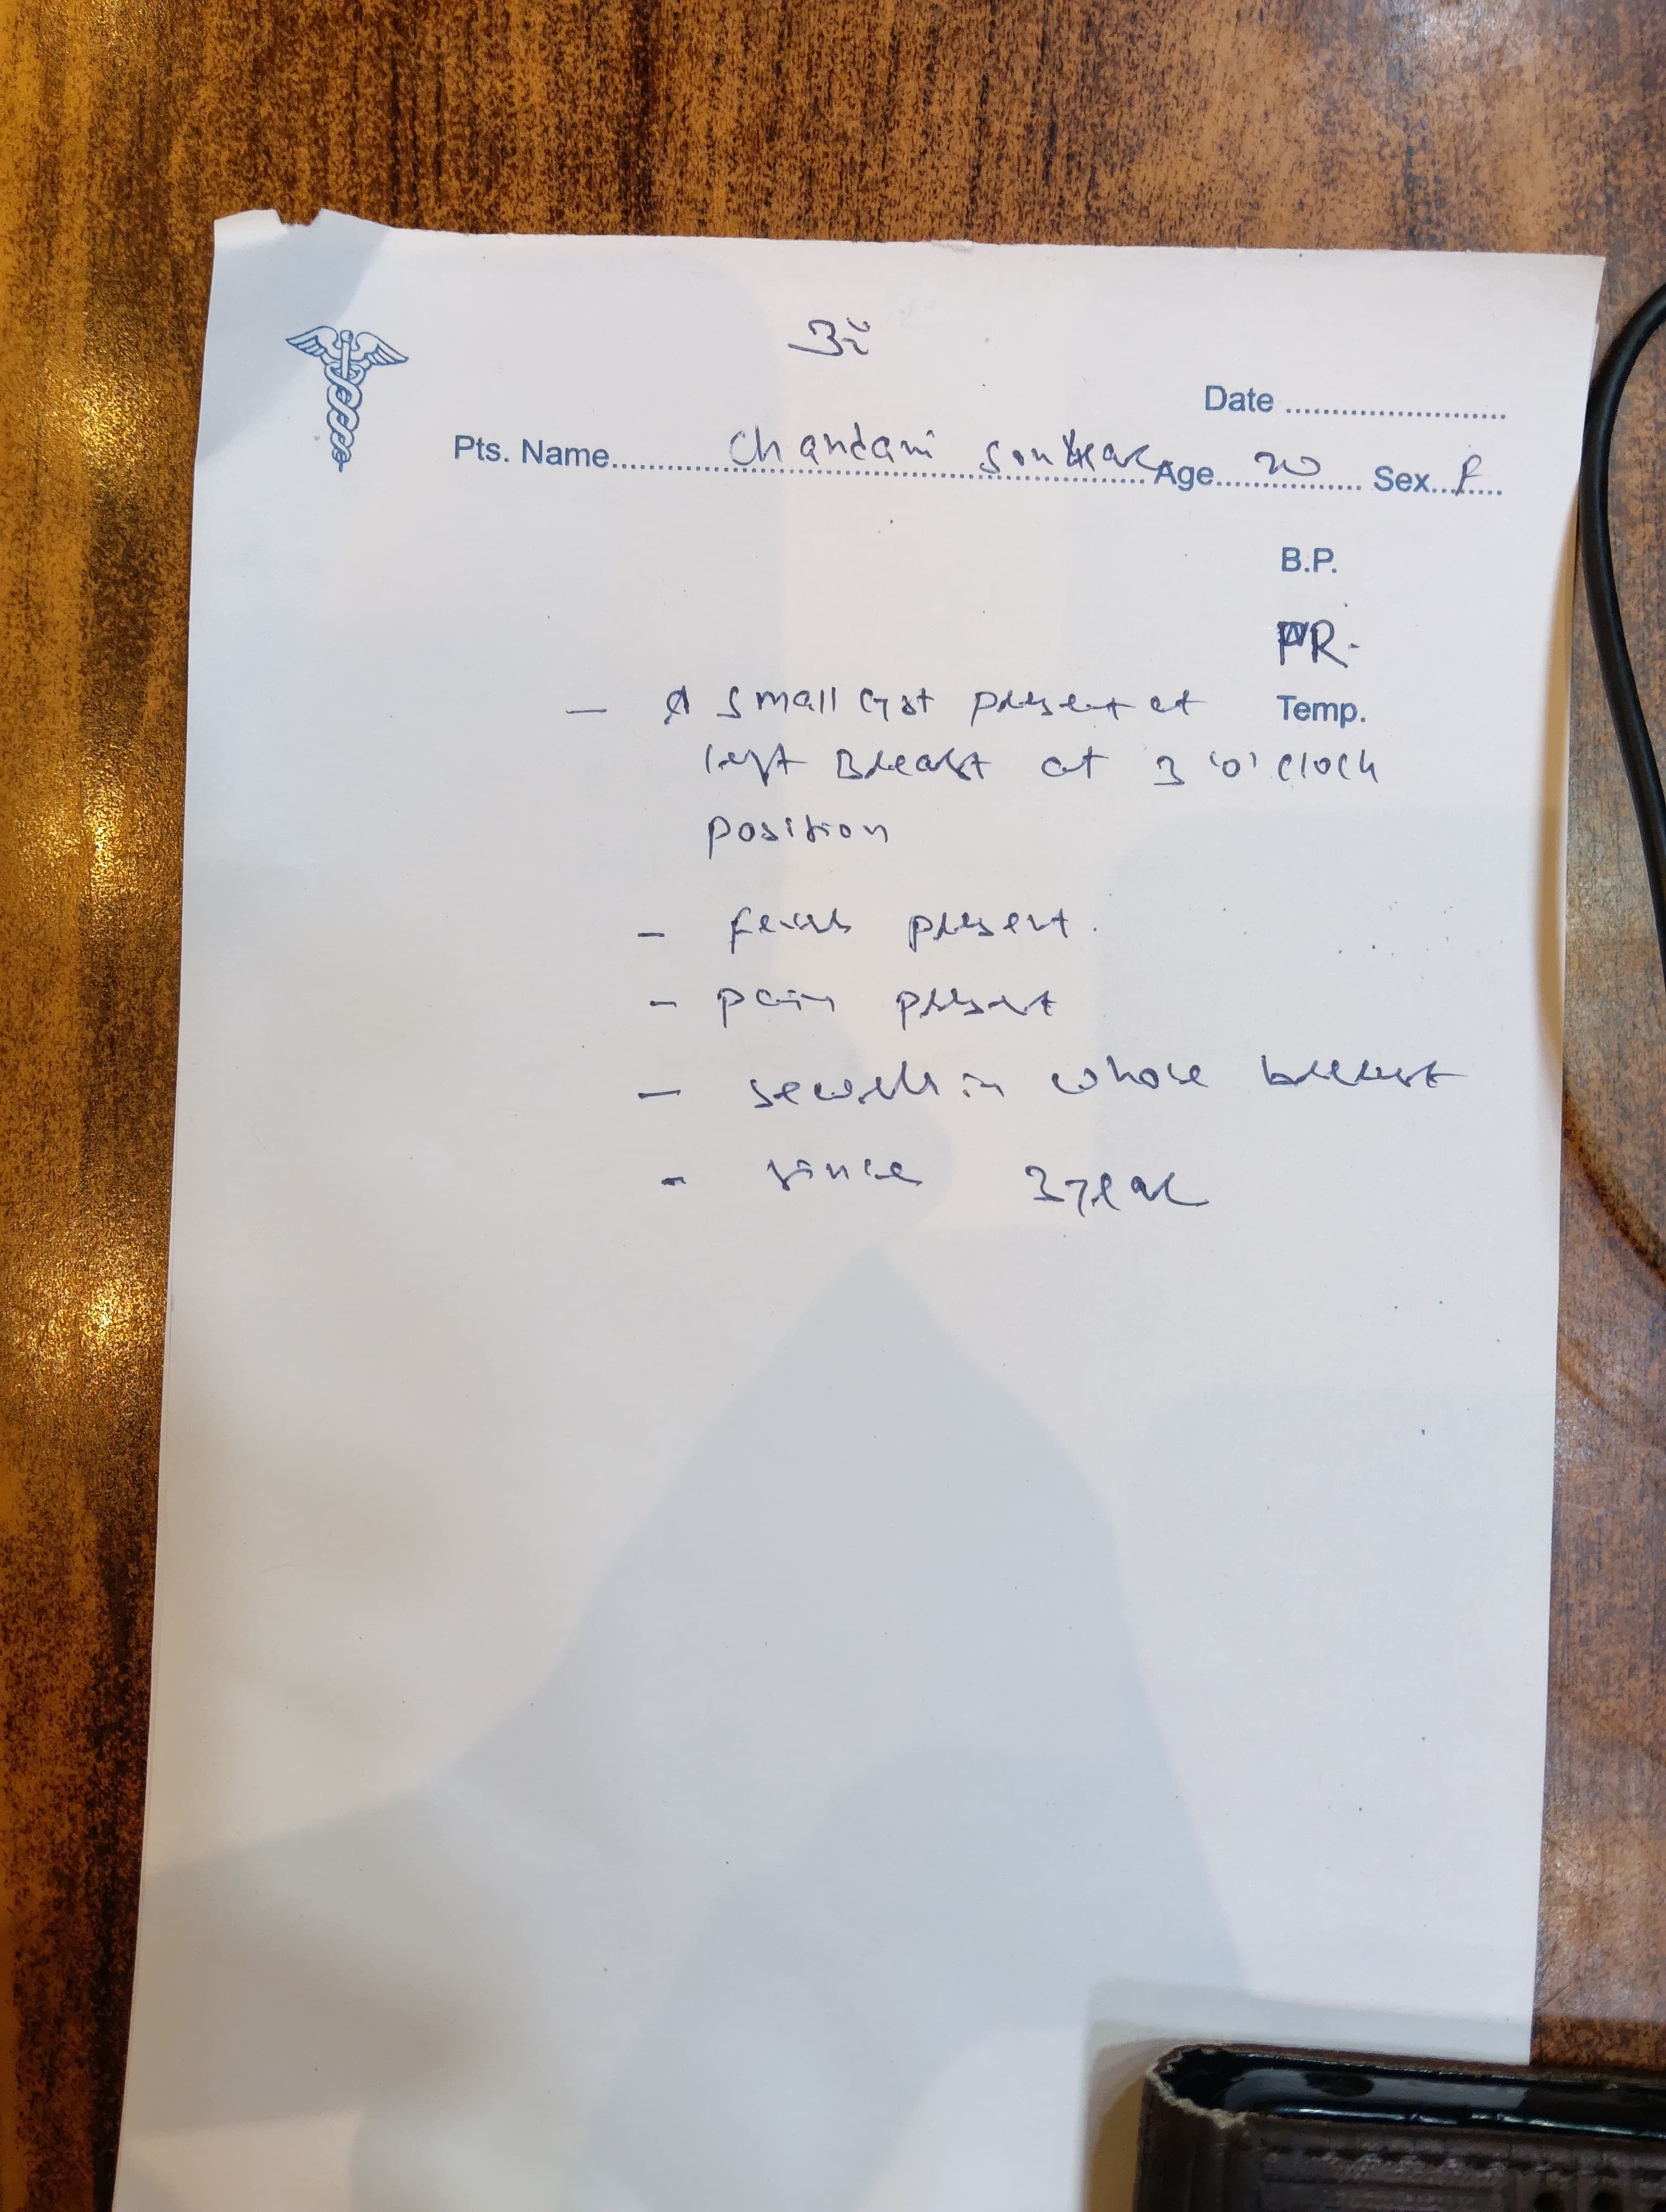 ॐ
Date ........................
Pts. Name............ Chandani Sonkar Age... 20 Sex... F
B.P.
PR-
Temp.
- A small cyst present at
left Breast at 3 'o' clock
position
- fever present.
- pain present
- in whole breast
- since 3 year